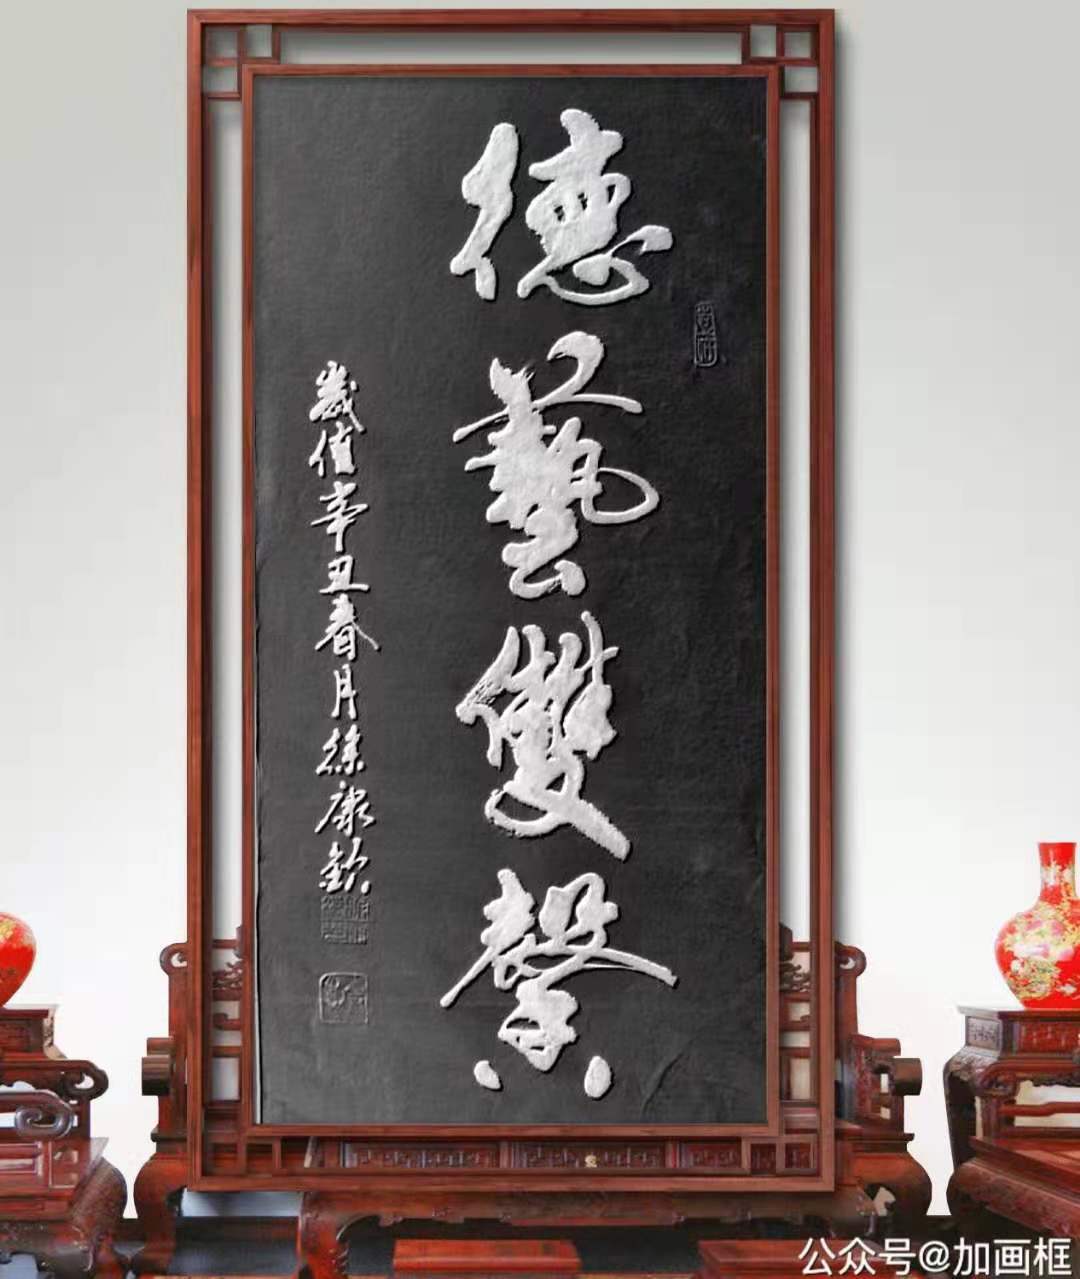 德藝雙馨
歲值辛丑春月徐康欽
公众号@加画框